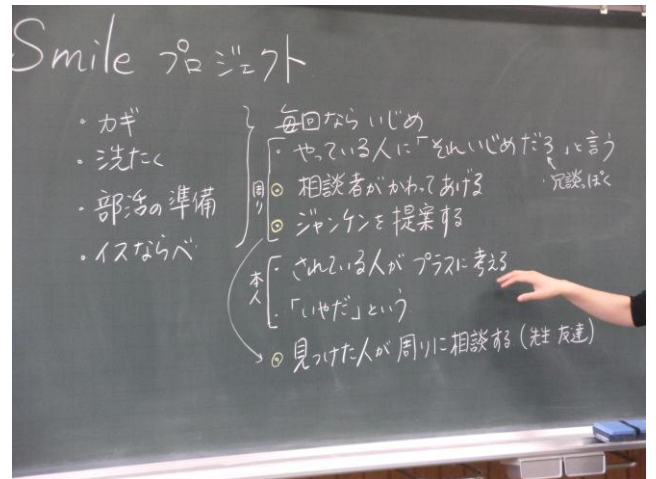 Smile プロジェクト
・カギ
・洗たく
・部活の準備
・イスならべ
毎回ならいじめ
周り
・やっている人に「それいじめだろ」と言う
・冗談っぽく
◎ 相談者がかわってあげる
◎ ジャンケンを提案する
本人
・されている人がプラスに考える
・「いやだ」という
◎ 見つけた人が周りに相談する(先生 友達)